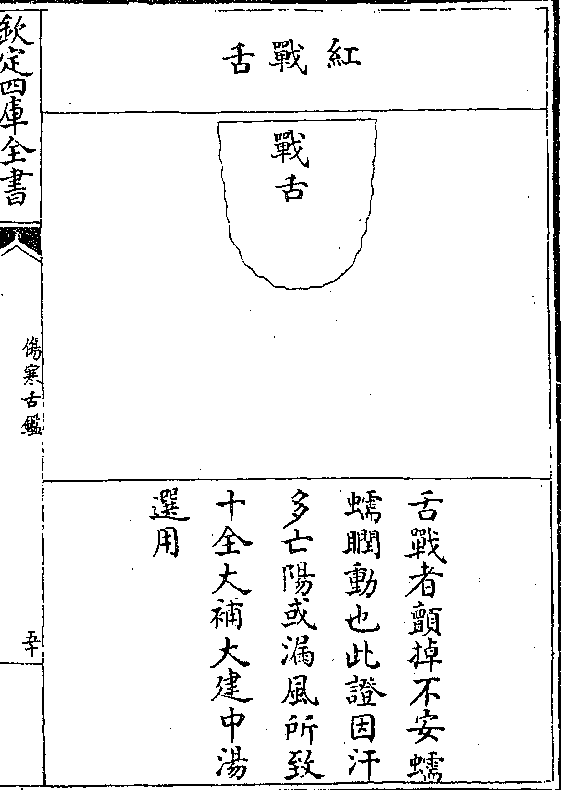 紅戰舌
戰舌
舌戰者顫掉不安蠕
蠕瞤動也此證因汗
多亡陽或漏風所致
十全大補大建中湯
選用
欽定四庫全書
傷寒舌鑑